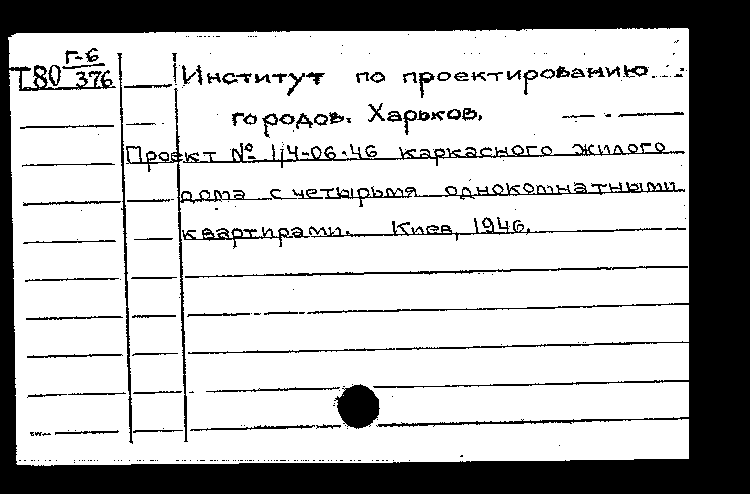 Г-6
Т80 376
Институт по проектированию
городов. Харьков.
Проект № 1/4-06-46 каркасного жилого
дома с четырьмя однокомнатными
квартирами. Киев, 1946.